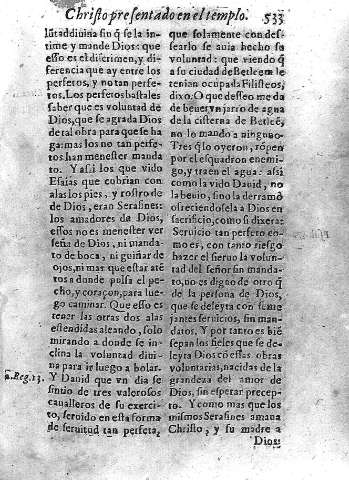 Christo presentado en el templo. 533
lũtad diuina sin q̃ se la in-
time y mande Dios: que
esso es el discrimen, y di-
ferencia que ay entre los
perfetos, y no tan perfe-
tos. Los perfetos bastales
saber que es voluntad de
Dios, que se agrada Dios
de tal obra para que se ha
ga: mas los no tan perfe-
tos han menester manda
to. Y assi los que vido
Esaias que cubrian con
alas los pies, y rostro de
de Dios, eran Serafines:
los amadores de Dios,
essos no es menester ver
seña de Dios, ni manda-
to de boca, ni guiñar de
ojos, ni mas que estar atẽ
tos a donde pulsa el pe-
cho, y coraçon, para lue-
go caminar. Que esso es
tener las otras dos alas
estendidas aleando, solo
mirando a donde se in-
clina la voluntad diui-
na para ir luego a bolar.
2. Reg. 23.
Y Dauid que vn dia se
siruio de tres valerosos
caualleros de su exerci-
to, seruido en esta forma
de seruitud tan perfeta,
que solamente con des-
searlo se auia hecho su
voluntad: que viendo q̃
a su ciudad de Betleem le
tenian ocupada Filisteos,
dixo. O que desseo me da
de beuer vn jarro de agua
de la cisterna de Betleẽ,
no lo mando a ninguno.
Tres q̃ lo oyeron, rõpen
por el esquadron enemi-
go, y traen el agua: assi
como la vido Dauid, no
la beuio, sino la derramò
ofreciendosela a Dios en
sacrificio, como si dixera:
Seruicio tan perfeto co-
mo es, con tanto riesgo
hazer el sieruo la volun-
tad del señor sin manda-
to, no es digno de otro q̃
de la persona de Dios,
que se deleyta con seme
jantes seruicios, sin man-
datos. Y por tanto es biẽ
sepan los fieles que se de-
leyta Dios cõ essas obras
voluntarias, nacidas de la
grandeza del amor de
Dios, sin esperar precep-
to. Y como mas que los
mismos Serafines amaua
Christo, y su madre a
Dios: